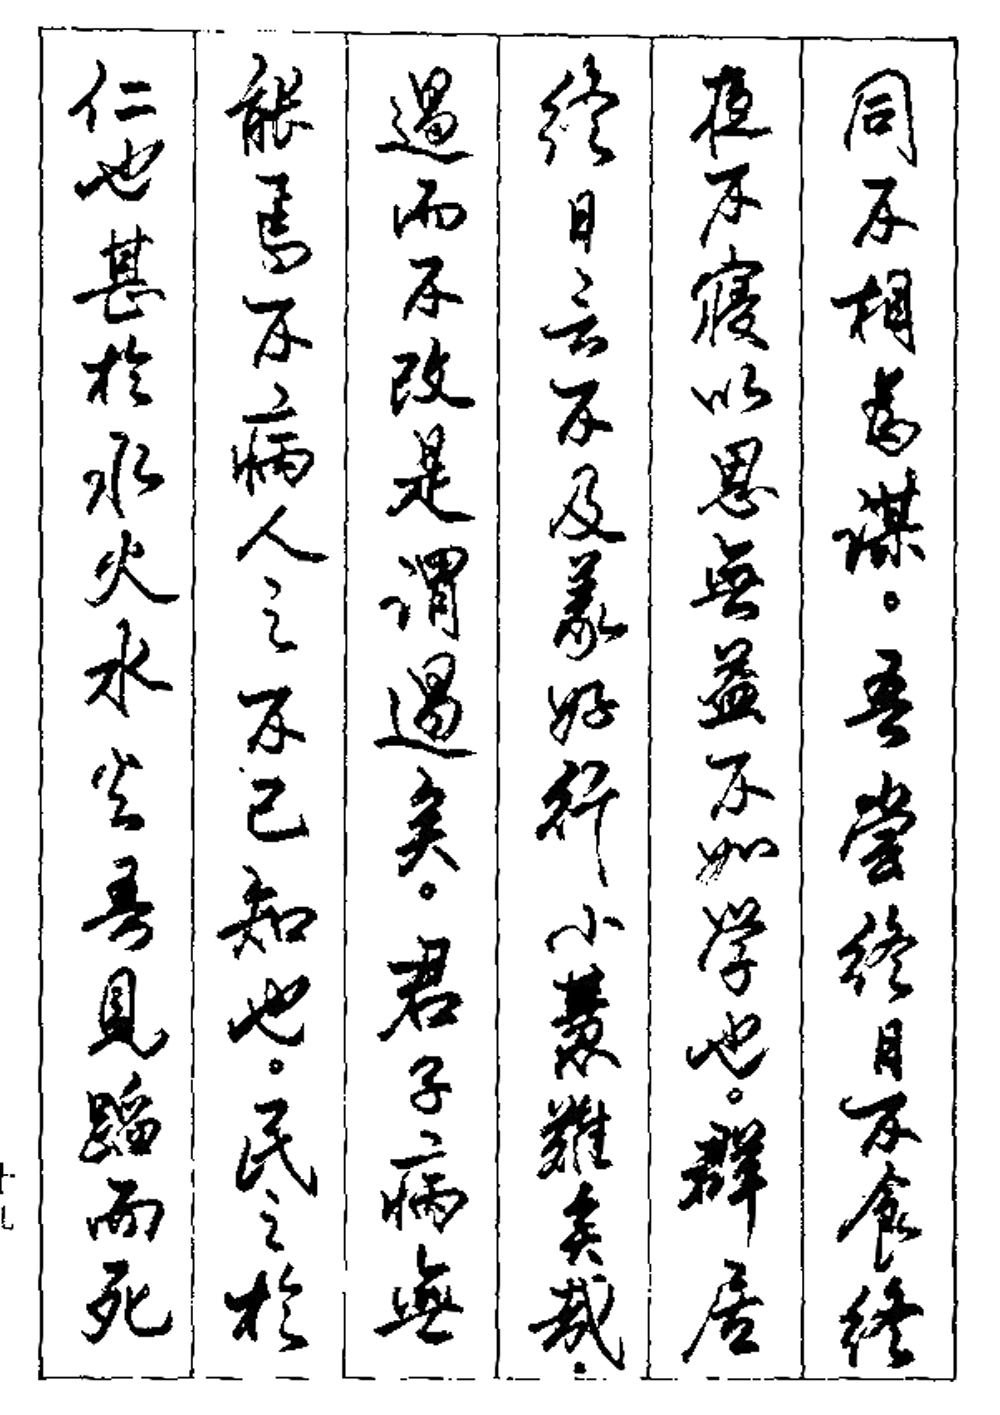 同不相為謀。吾嘗終日不食終
夜不寢以思無益不如学也。群居
終日言不及義好行小慧難矣哉。
過而不改是謂過矣。君子病無
能焉不病人之不己知也。民之於
仁也甚於水火水火吾見蹈而死
十九